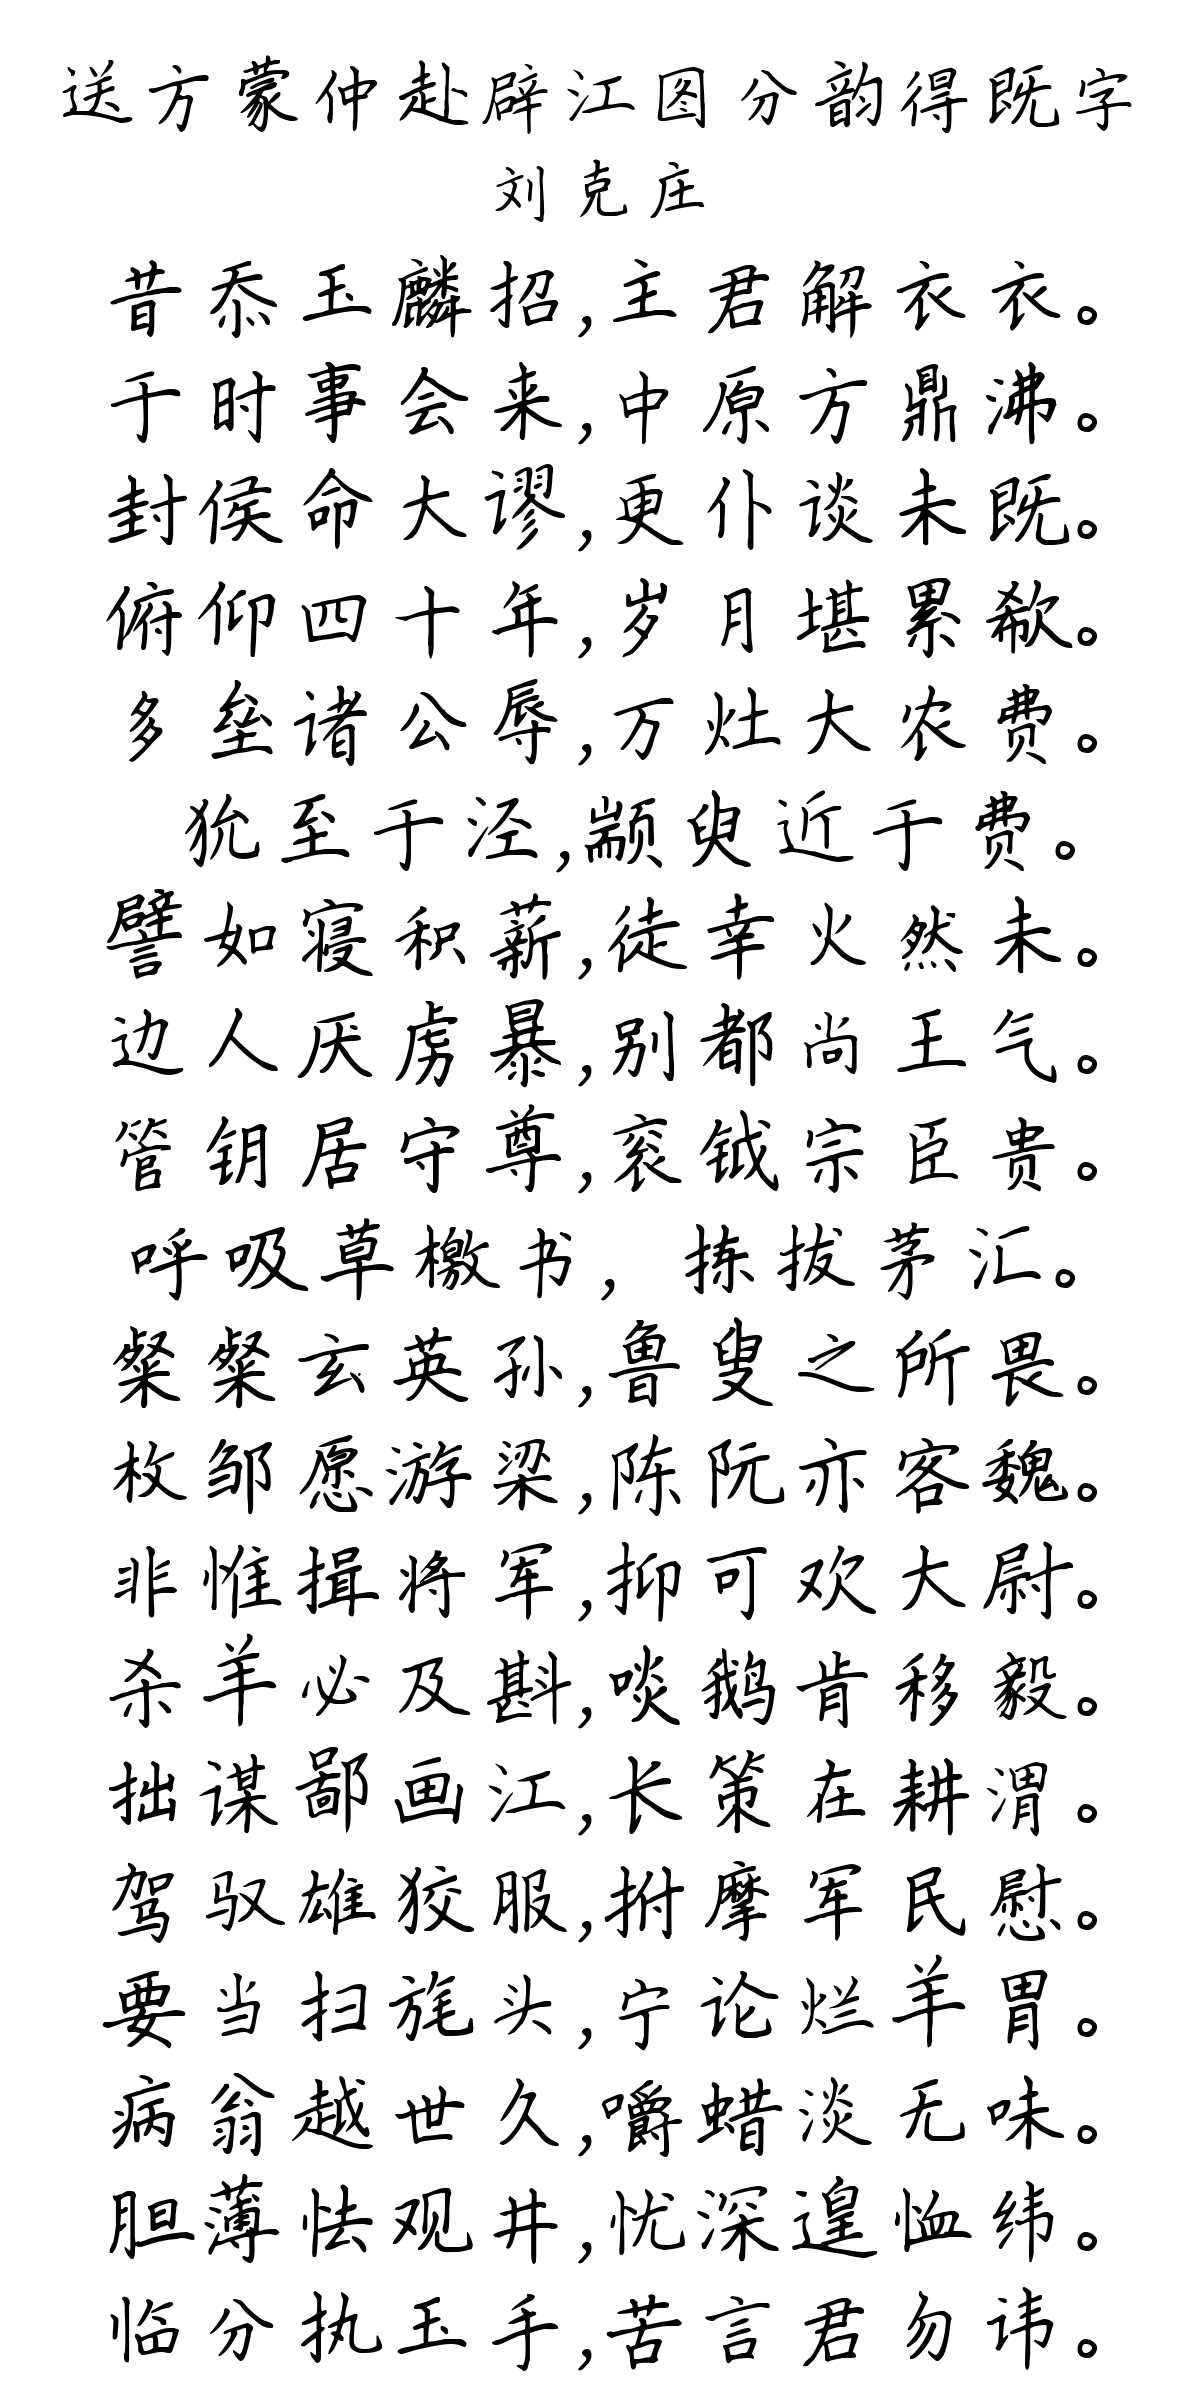 送方蒙仲赴辟江图分韵得既字
刘克庄
昔忝玉麟招,主君解衣衣。
于时事会来,中原方鼎沸。
封侯命大谬,更仆谈未既。
俯仰四十年,岁月堪累欷。
多垒诸公辱,万灶大农费。
狁至于泾,颛臾近于费。
譬如寝积薪,徒幸火然未。
边人厌虏暴,别都尚王气。
管钥居守尊,衮钺宗臣贵。
呼吸草檄书,拣拔茅汇。
粲粲玄英孙,鲁叟之所畏。
枚邹愿游梁,陈阮亦客魏。
非惟揖将军,抑可欢大尉。
杀羊必及斟,啖鹅肯移毅。
拙谋鄙画江,长策在耕渭。
驾驭雄狡服,拊摩军民慰。
要当扫旄头,宁论烂羊胃。
病翁越世久,嚼蜡淡无味。
胆薄怯观井,忧深遑恤纬。
临分执玉手,苦言君勿讳。